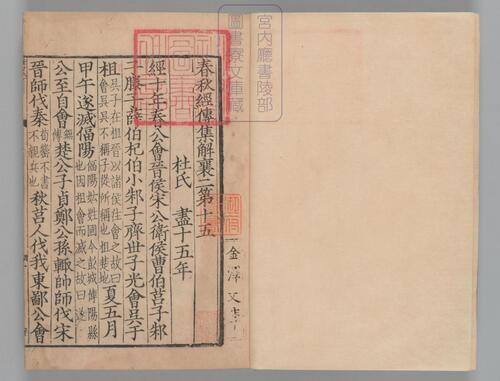 春秋經傳集解襄二第十五
杜氏 盡十五年
經十年春公會晉侯宋公衛侯曹伯莒子邾
子滕子薛伯杞伯小邾子齊世子光會吳于
柤吳子在柤晉以諸侯往會之故曰會吳吳不稱子從所稱也柤楚地夏五月
甲午遂滅偪陽偪陽妘姓國今彭城傅陽縣也因柤會而滅之故曰遂
公至自會無傳楚公子貞鄭公孫輒帥師伐宋
晉師伐秦荀罃不書不親兵也秋莒人伐我東鄙公會
金澤文庫
宮內廳書陵部
圖書寮文庫藏